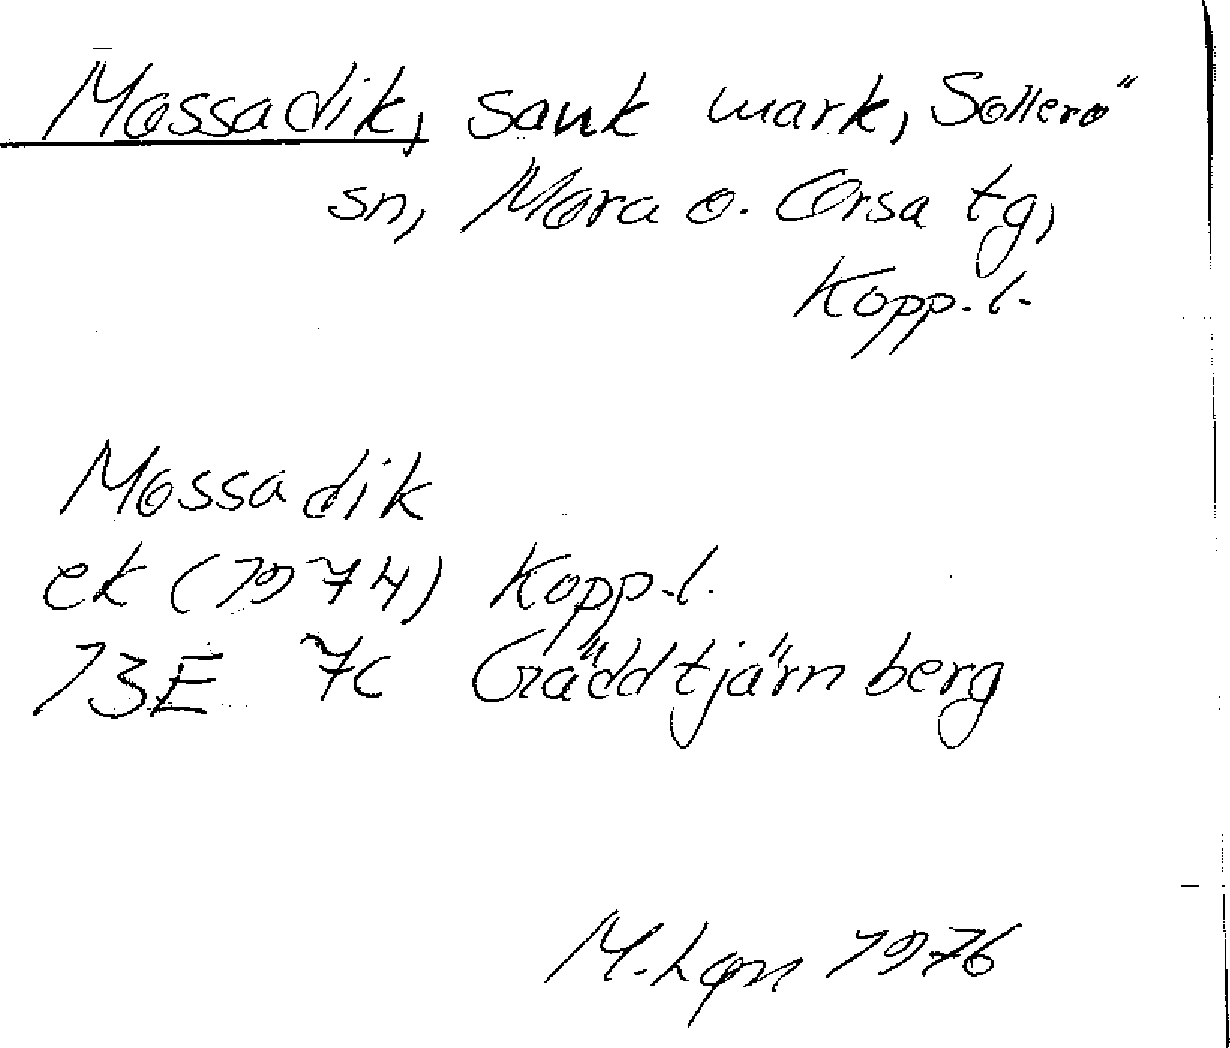 Mossadik, sank mark, Sollerö
sn, Mora o. Orsa tg,
Kopp. l.
Mossadik
ek (1974) Kopp. l.
13E 7c Gäddtjärnberg
M. Lgn 1976